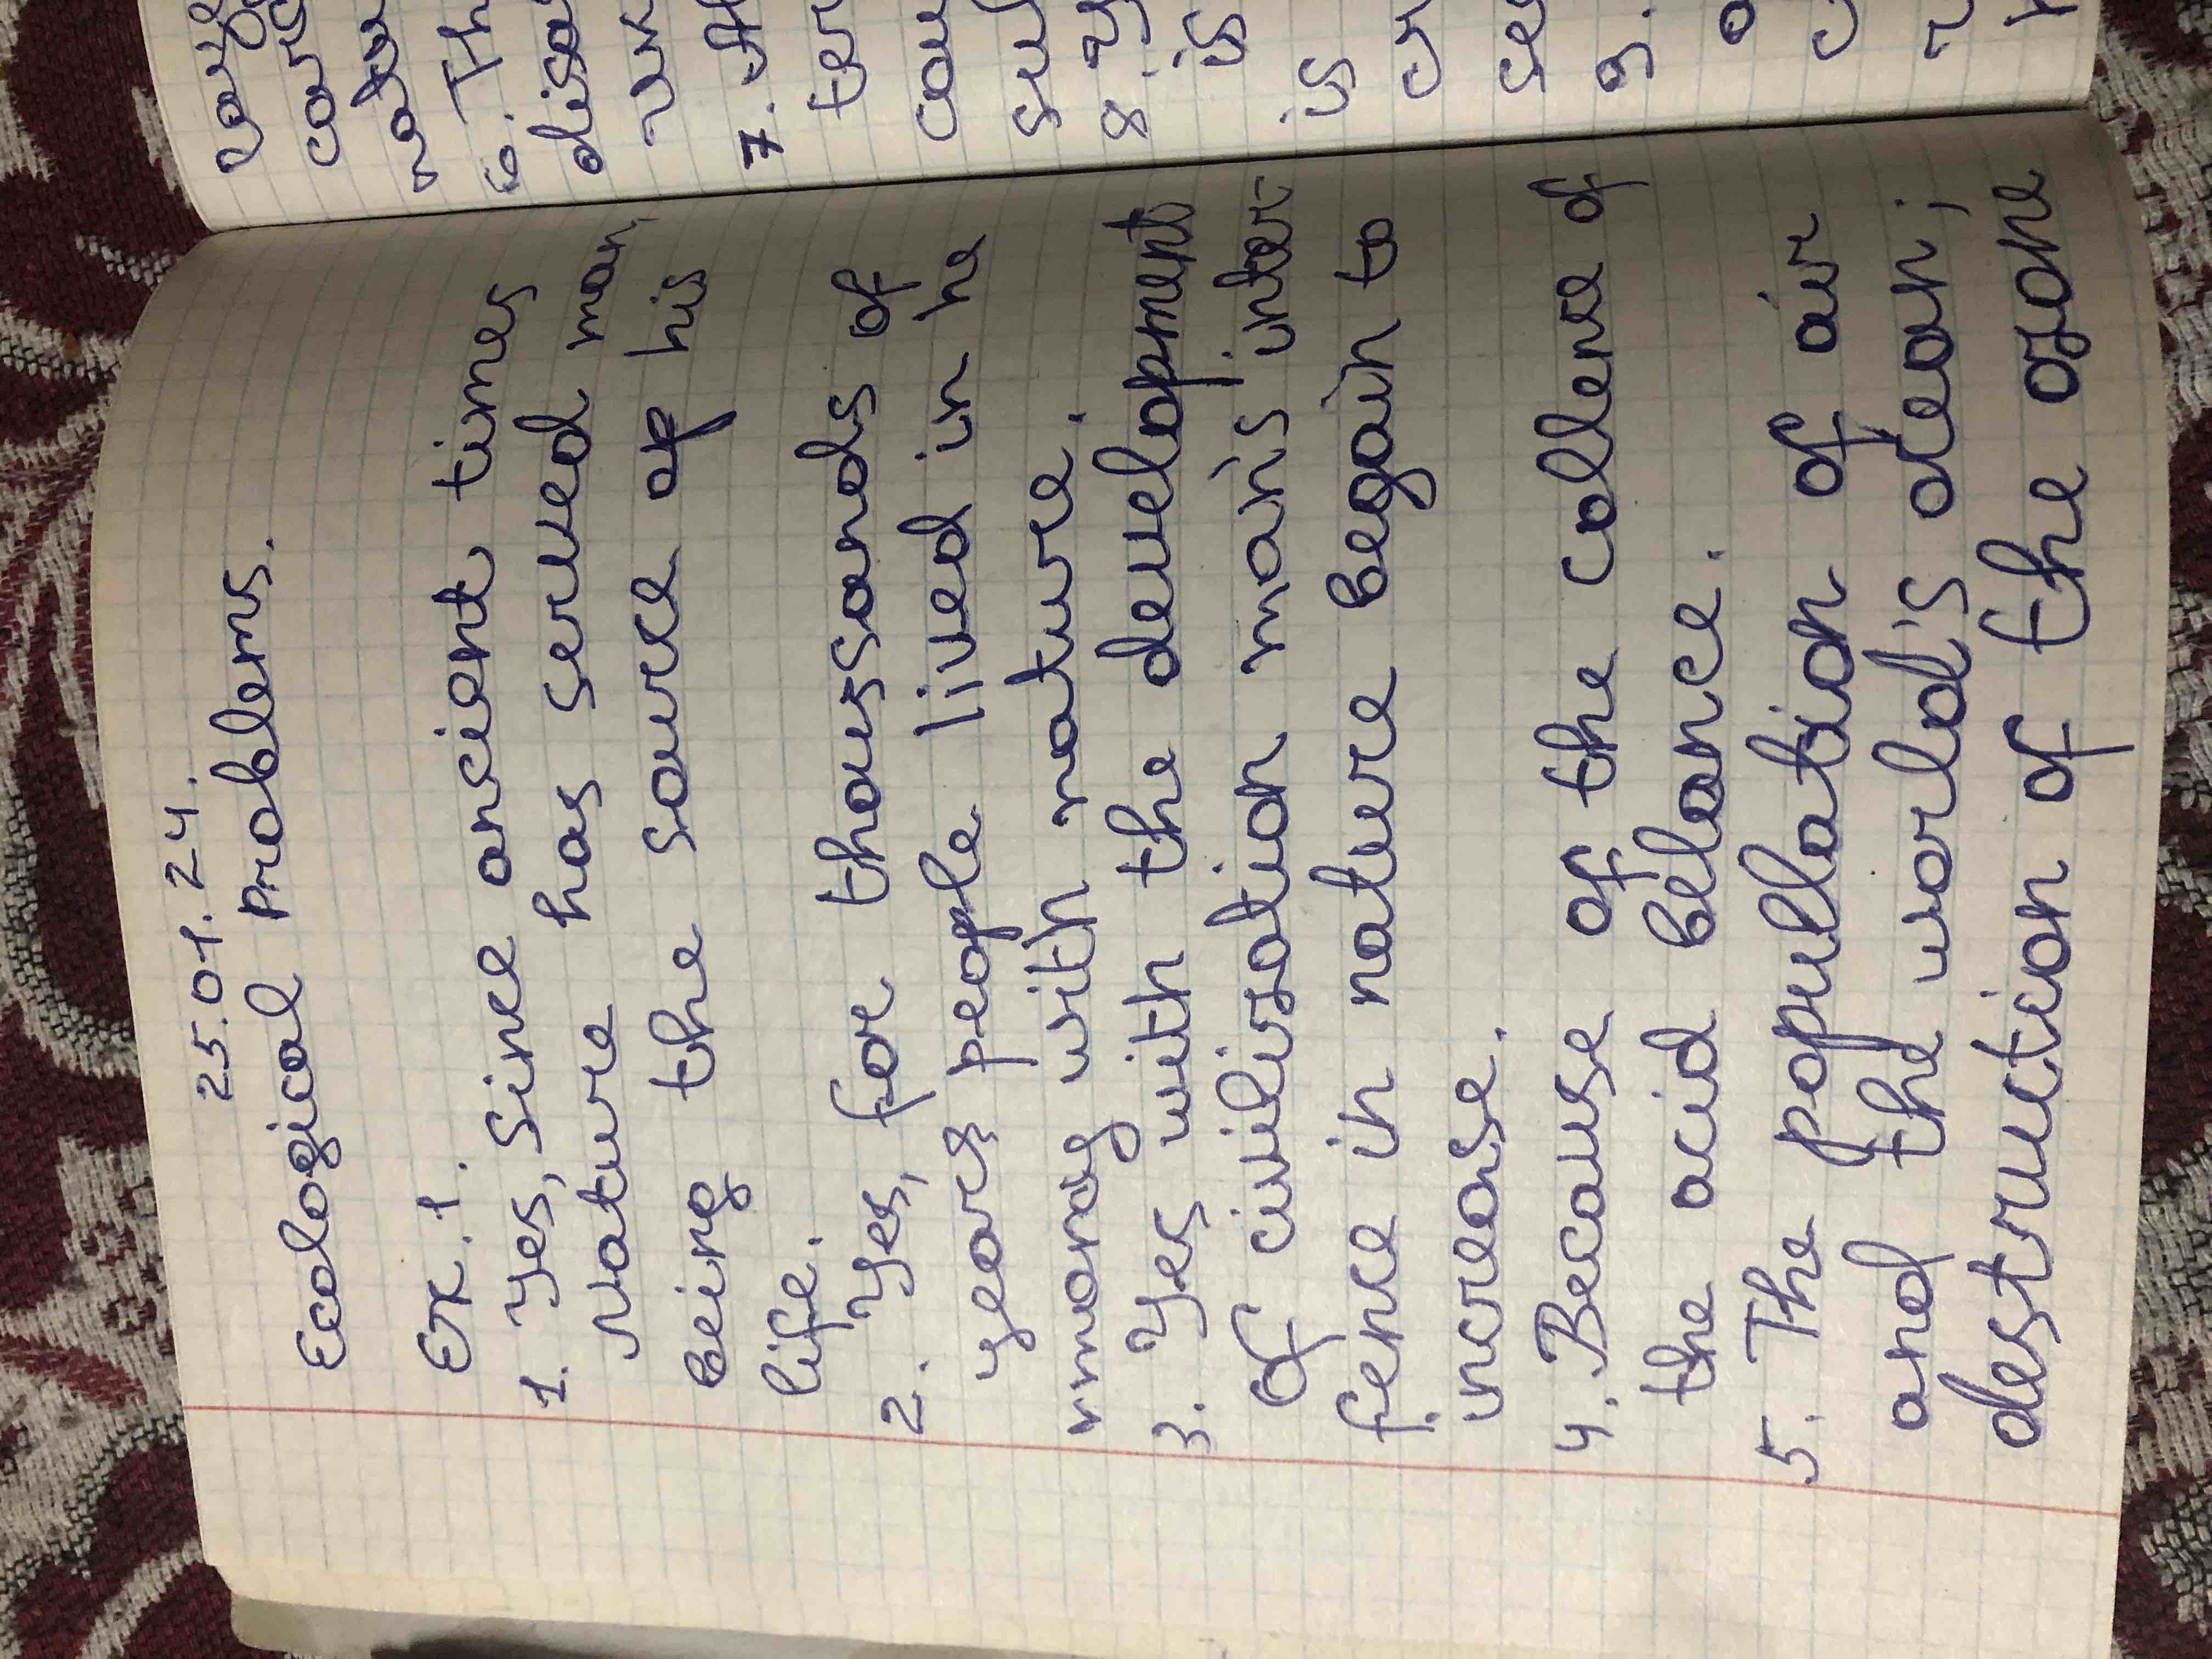 25.01.24.
Ecological Problems.
Ex. 1.
1. Yes, since ancient times
Nature has served man,
being the source of his
life.
2. Yes, for thousands of
years people lived in ha
rmony with nature.
3. Yes with the development
of civilization man's inter-
ference in nature begain to
increase.
4. Because of the collene of
the acid belance.
5. The popullation of air
and the world's ocean;
destruction of the ozone
laye
card
natu
6. Th
disa
7. A
ter
cou
sul
8. Y
is
is
cr
se
9.